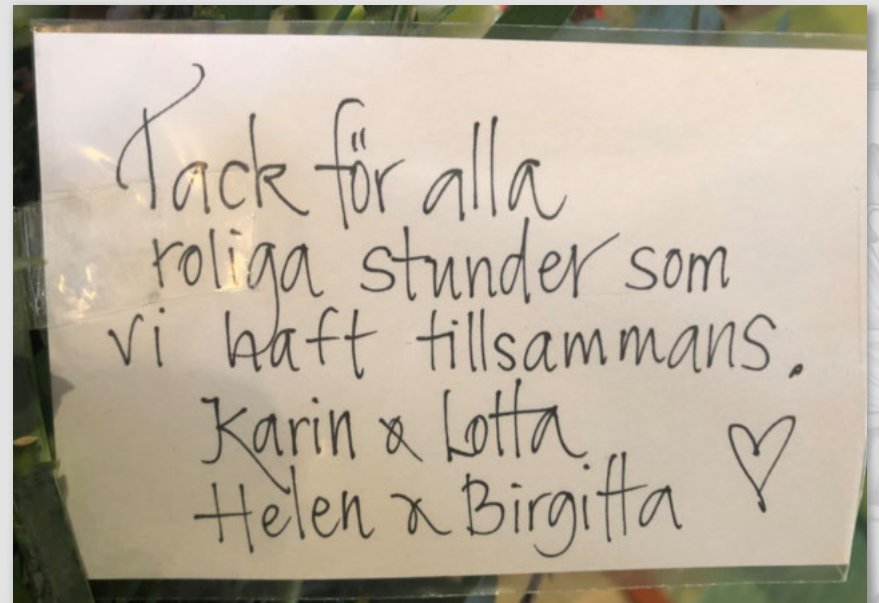 Tack för alla
roliga stunder som
vi haft tillsammans.
Karin & Lotta
Helen & Birgitta ♡